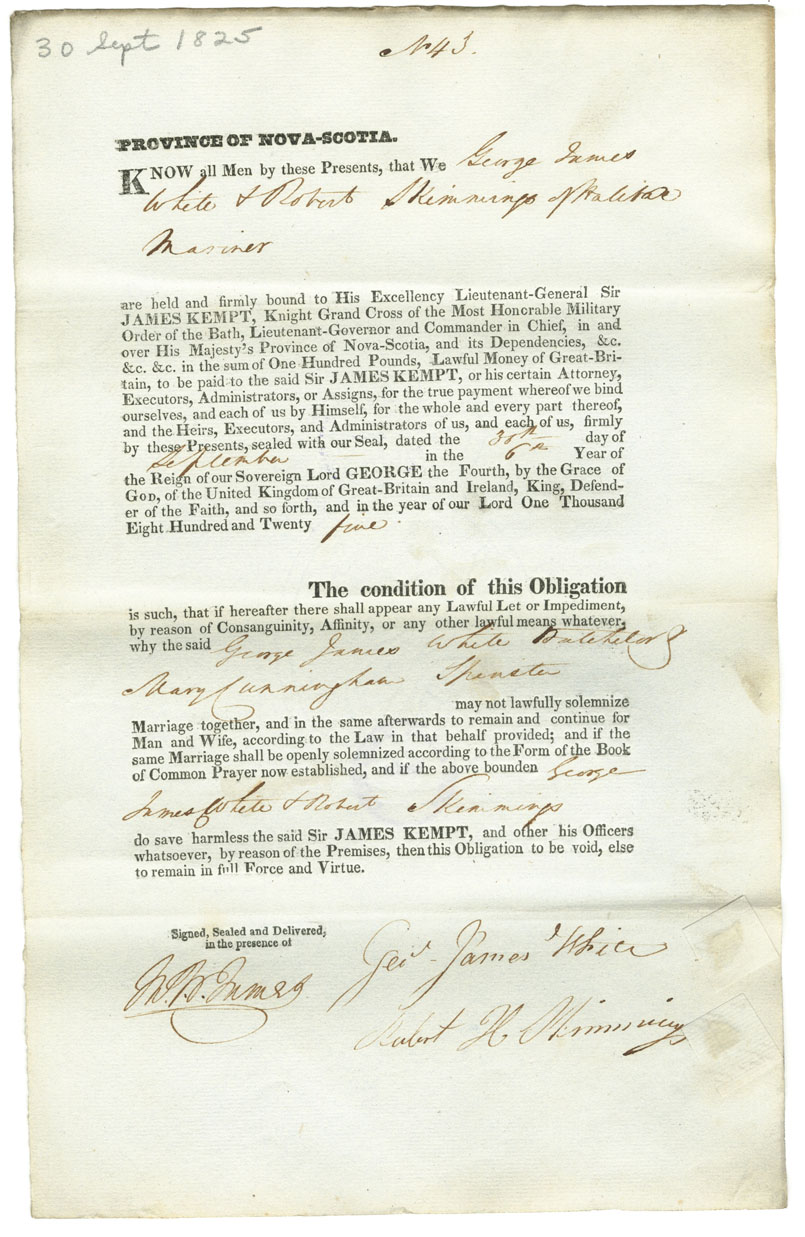 30 Sept 1825
No 43.
PROVINCE OF NOVA-SCOTIA.
KNOW all Men by these Presents, that We George James
White & Robert Skimmings of Halifax
Mariner
are held and firmly bound to His Excellency Lieutenant-General Sir
JAMES KEMPT, Knight Grand Cross of the Most Honorable Military
Order of the Bath, Lieutenant-Governor and Commander in Chief, in and
over His Majesty's Province of Nova-Scotia, and its Dependencies, &c.
&c. &c. in the sum of One Hundred Pounds, Lawful Money of Great-Bri-
tain, to be paid to the said Sir JAMES KEMPT, or his certain Attorney,
Executors, Administrators, or Assigns, for the true payment whereof we bind
ourselves, and each of us by Himself, for the whole and every part thereof,
and the Heirs, Executors, and Administrators of us, and each of us, firmly
by these Presents, sealed with our Seal, dated the 30th day of
September in the 6th Year of
the Reign of our Sovereign Lord GEORGE the Fourth, by the Grace of
GOD, of the United Kingdom of Great-Britain and Ireland, King, Defend-
er of the Faith, and so forth, and in the year of our Lord One Thousand
Eight Hundred and Twenty five.
The condition of this Obligation
is such, that if hereafter there shall appear any Lawful Let or Impediment,
by reason of Consanguinity, Affinity, or any other lawful means whatever,
why the said George James White Batchelor &
Mary Cunningham Spinster
may not lawfully solemnize
Marriage together, and in the same afterwards to remain and continue for
Man and Wife, according to the Law in that behalf provided; and if the
same Marriage shall be openly solemnized according to the Form of the Book
of Common Prayer now established, and if the above bounden George
James White & Robert Skimmings
do save harmless the said Sir JAMES KEMPT, and other his Officers
whatsoever, by reason of the Premises, then this Obligation to be void, else
to remain in full Force and Virtue.
Signed, Sealed and Delivered,
in the presence of
James
Geo James White
Robert H Skimmings